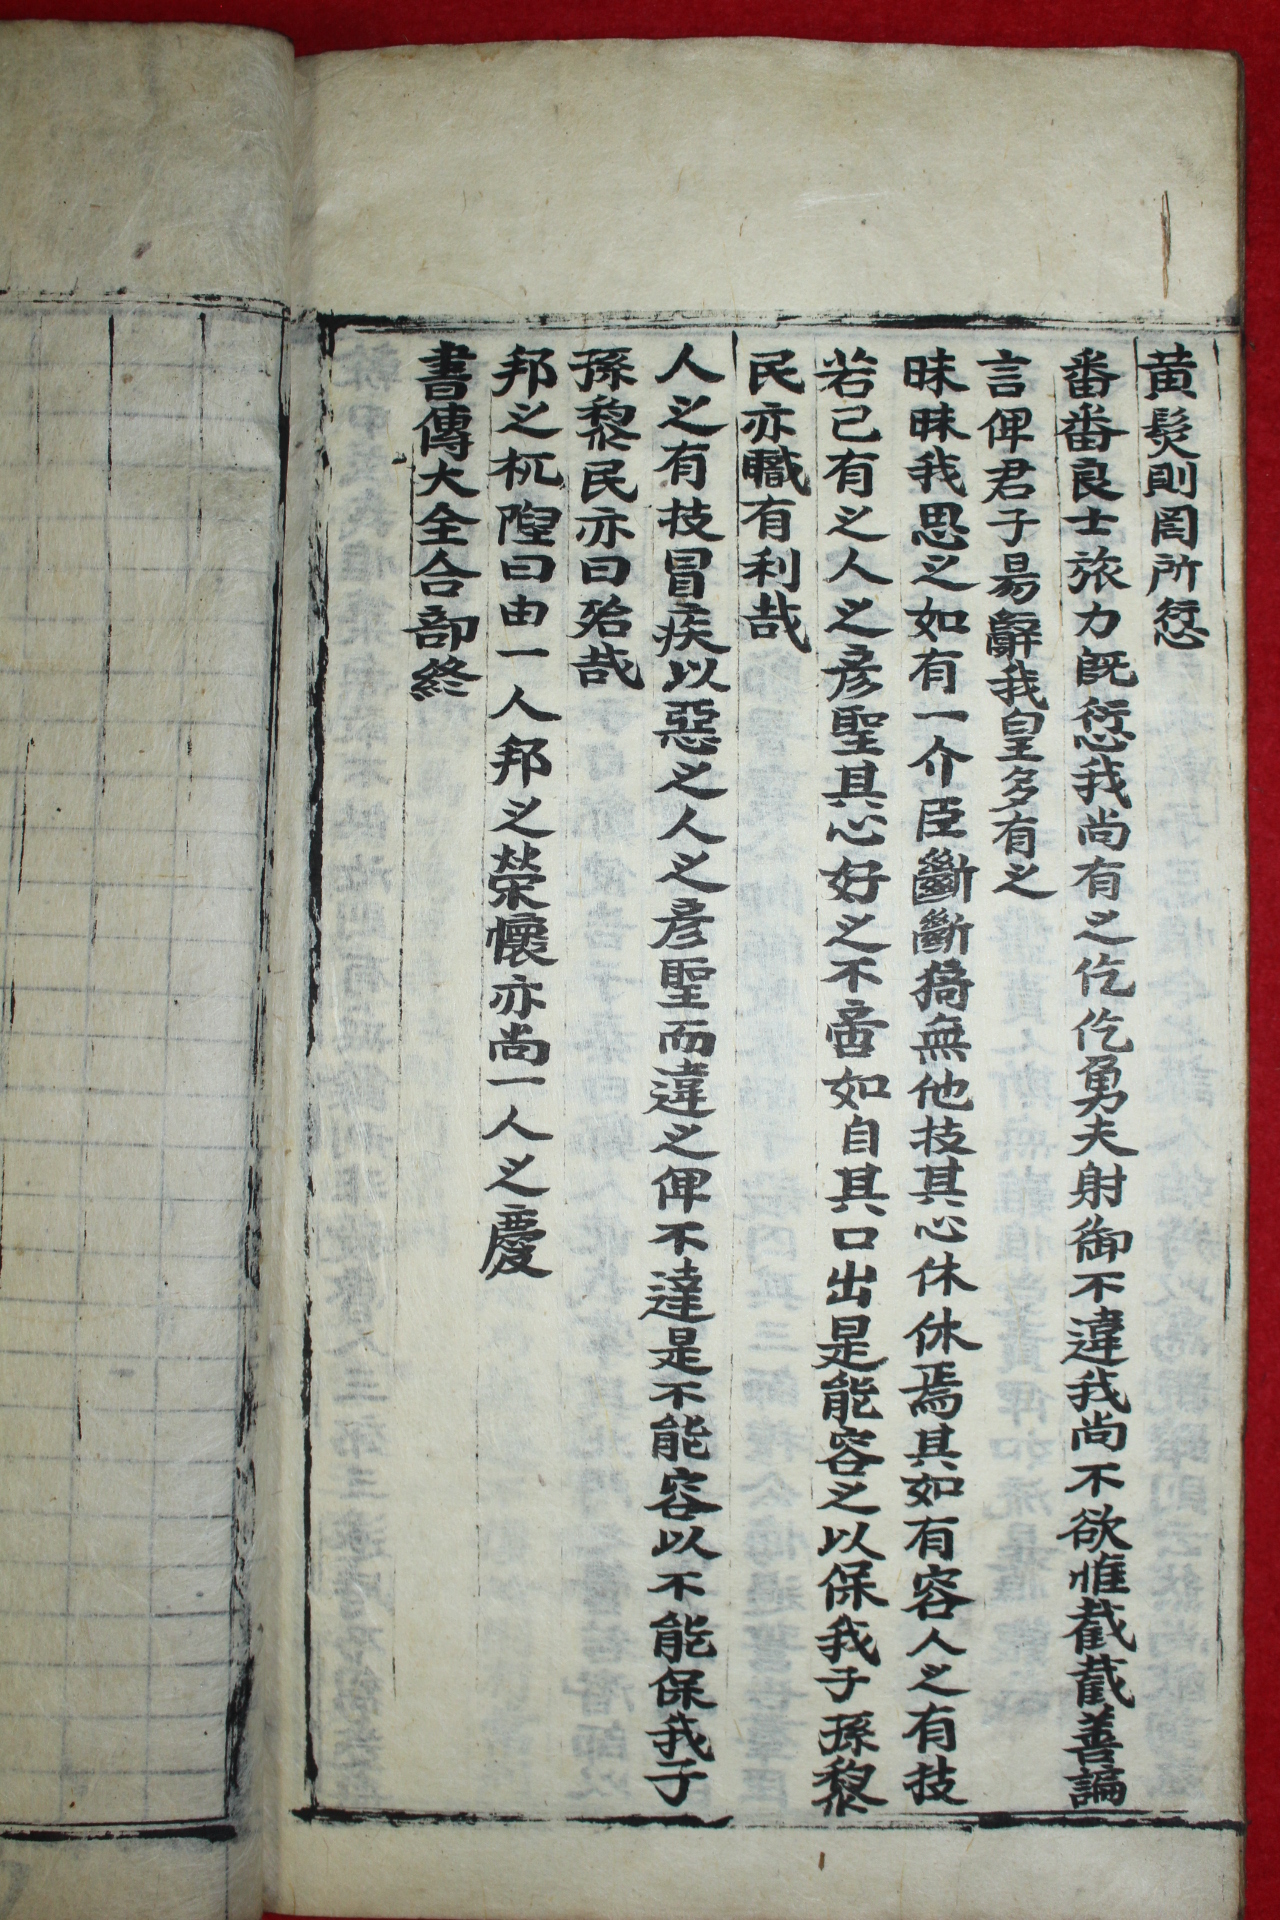 黄髮則罔所愆
番番良士旅力旣愆我尚有之仡仡勇夫射御不違我尚不欲惟截截善諞
言俾君子易辭我皇多有之
昧昧我思之如有一介臣斷斷猗無他技其心休休焉其如有容人之有技
若己有之人之彦聖其心好之不啻如自其口出是能容之以保我子孫黎
民亦職有利哉
人之有技冒疾以惡之人之彦聖而違之俾不達是不能容以不能保我子
孫黎民亦曰殆哉
邦之杌隉曰由一人邦之榮懷亦尚一人之慶
書傳大全合部終